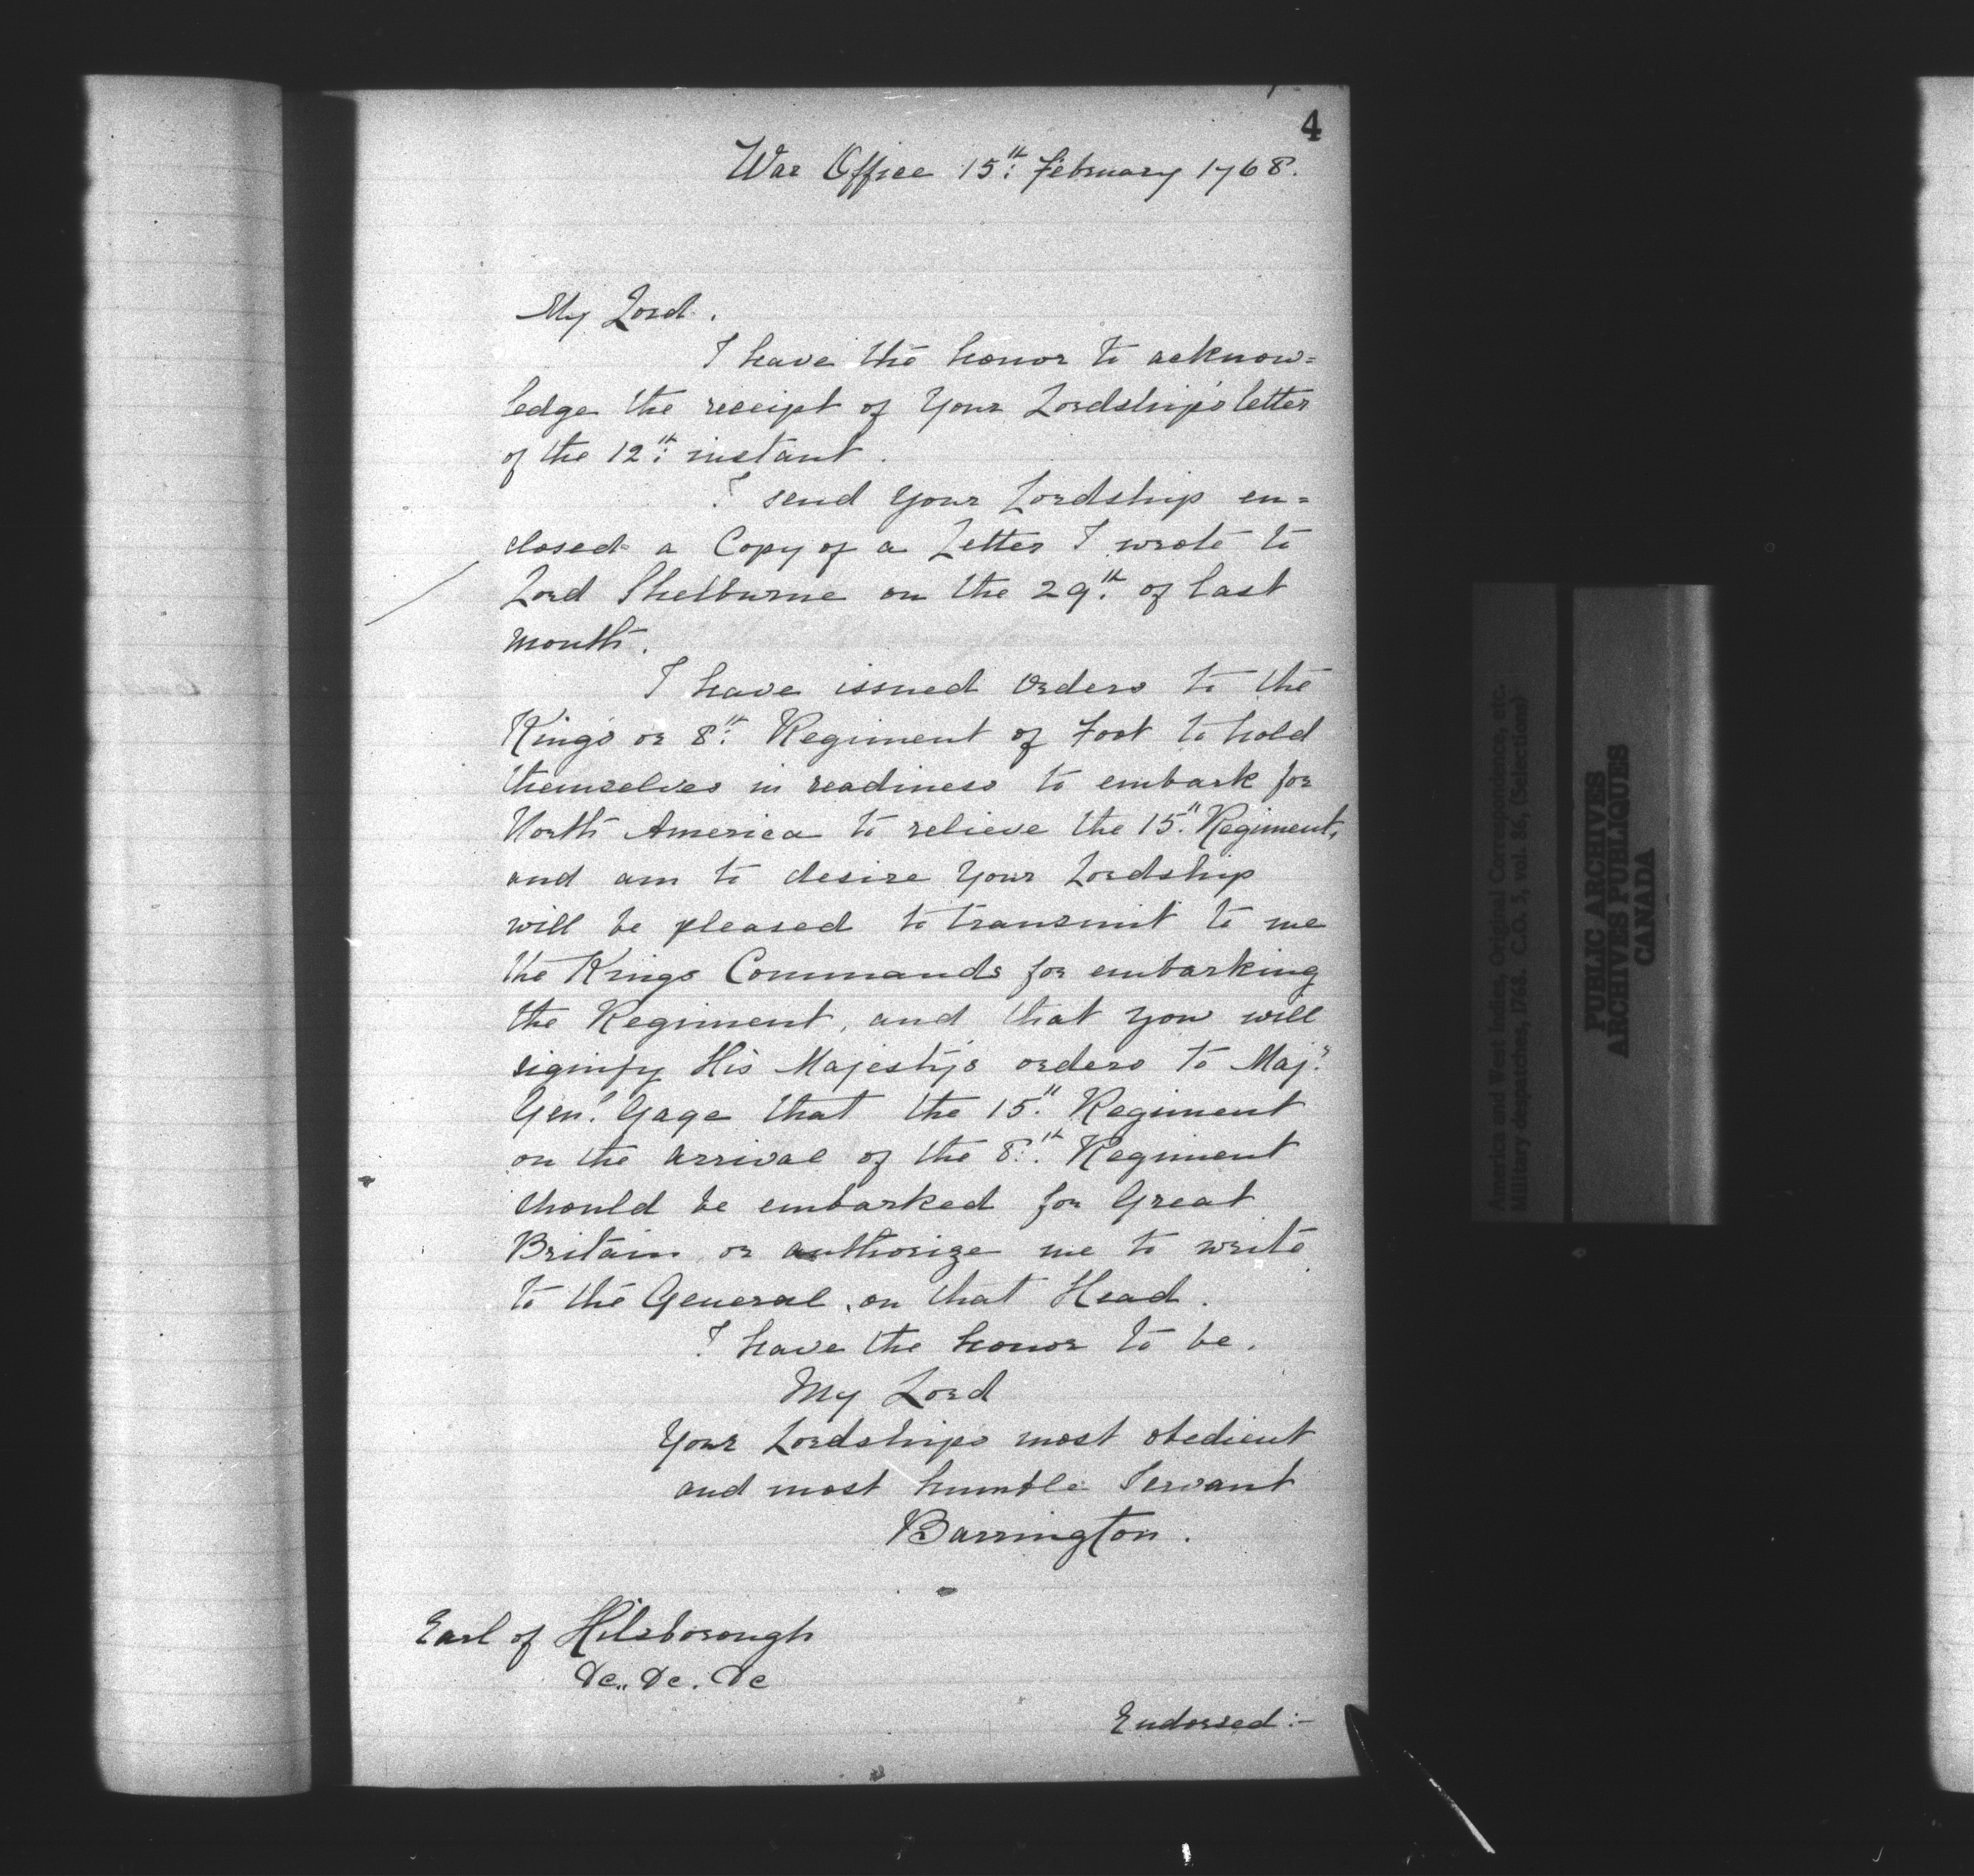 4
War Office 15th: February 1768.
My Lord.
I have the honor to acknow=
ledge the receipt of Your Lordship's letter
of the 12th: instant.
I send Your Lordship en=
closed a Copy of a Letter I wrote to
Lord Shelburne on the 29th. of last
month.
I have issued Orders to the
King's or 8th: Regiment of Foot to hold
themselves in readiness to embark for
North America to relieve the 15th. Regiment,
and am to desire Your Lordship
will be pleased to transmit to me
the Kings Commands for embarking
the Regiment, and that you will
signify His Majesty's orders to Majr.
Genl. Gage that the 15th. Regiment
on the arrival of the 8th. Regiment
should be embarked for Great
Britain or authorize me to write
to the General, on that Head.
I have the honor to be.
My Lord
Your Lordships most obedient
and most humble Servant
Barrington.
Earl of Hilsborough
&c.. &c. &c
Endorsed :-
America and West Indies, Original Correspondence, etc.
Military despatches, 1768. C.O. 5, vol. 86, (Selections)
PUBLIC ARCHIVES
ARCHIVES PUBLIQUES
CANADA